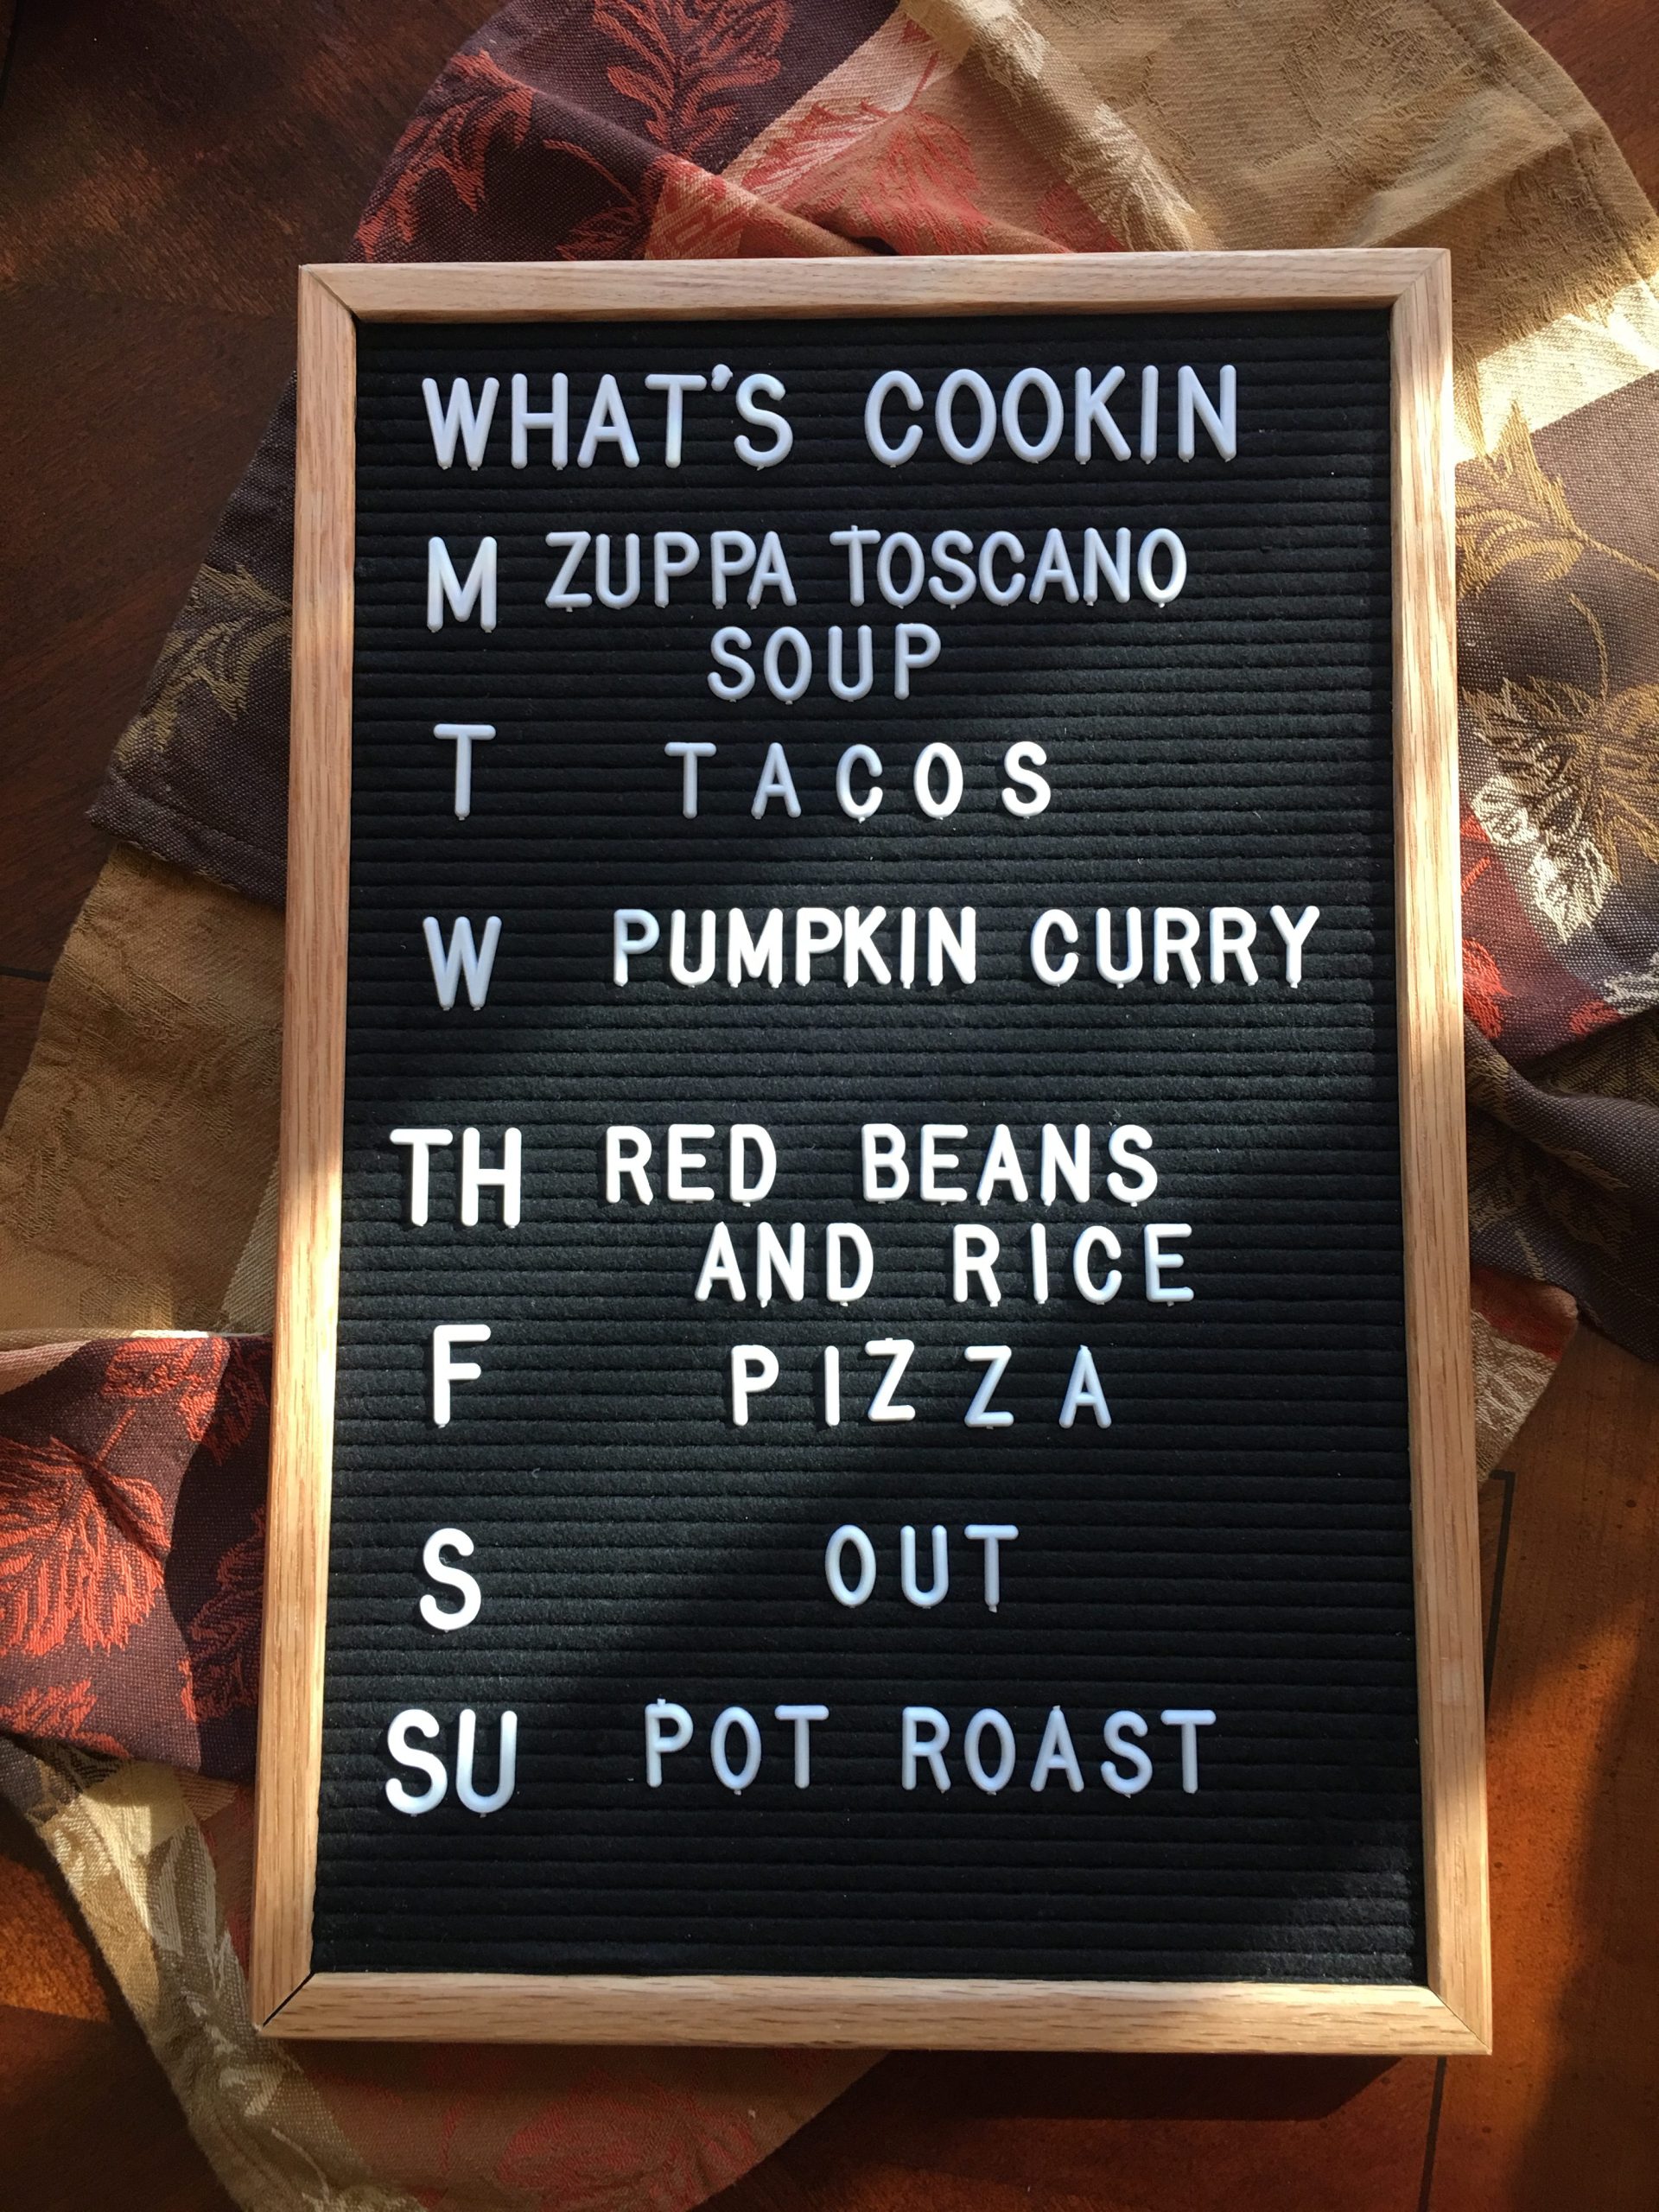 WHAT'S COOKIN
M ZUPPA TOSCANO
SOUP
T TACOS
W PUMPKIN CURRY
TH RED BEANS
AND RICE
F PIZZA
S OUT
SU POT ROAST